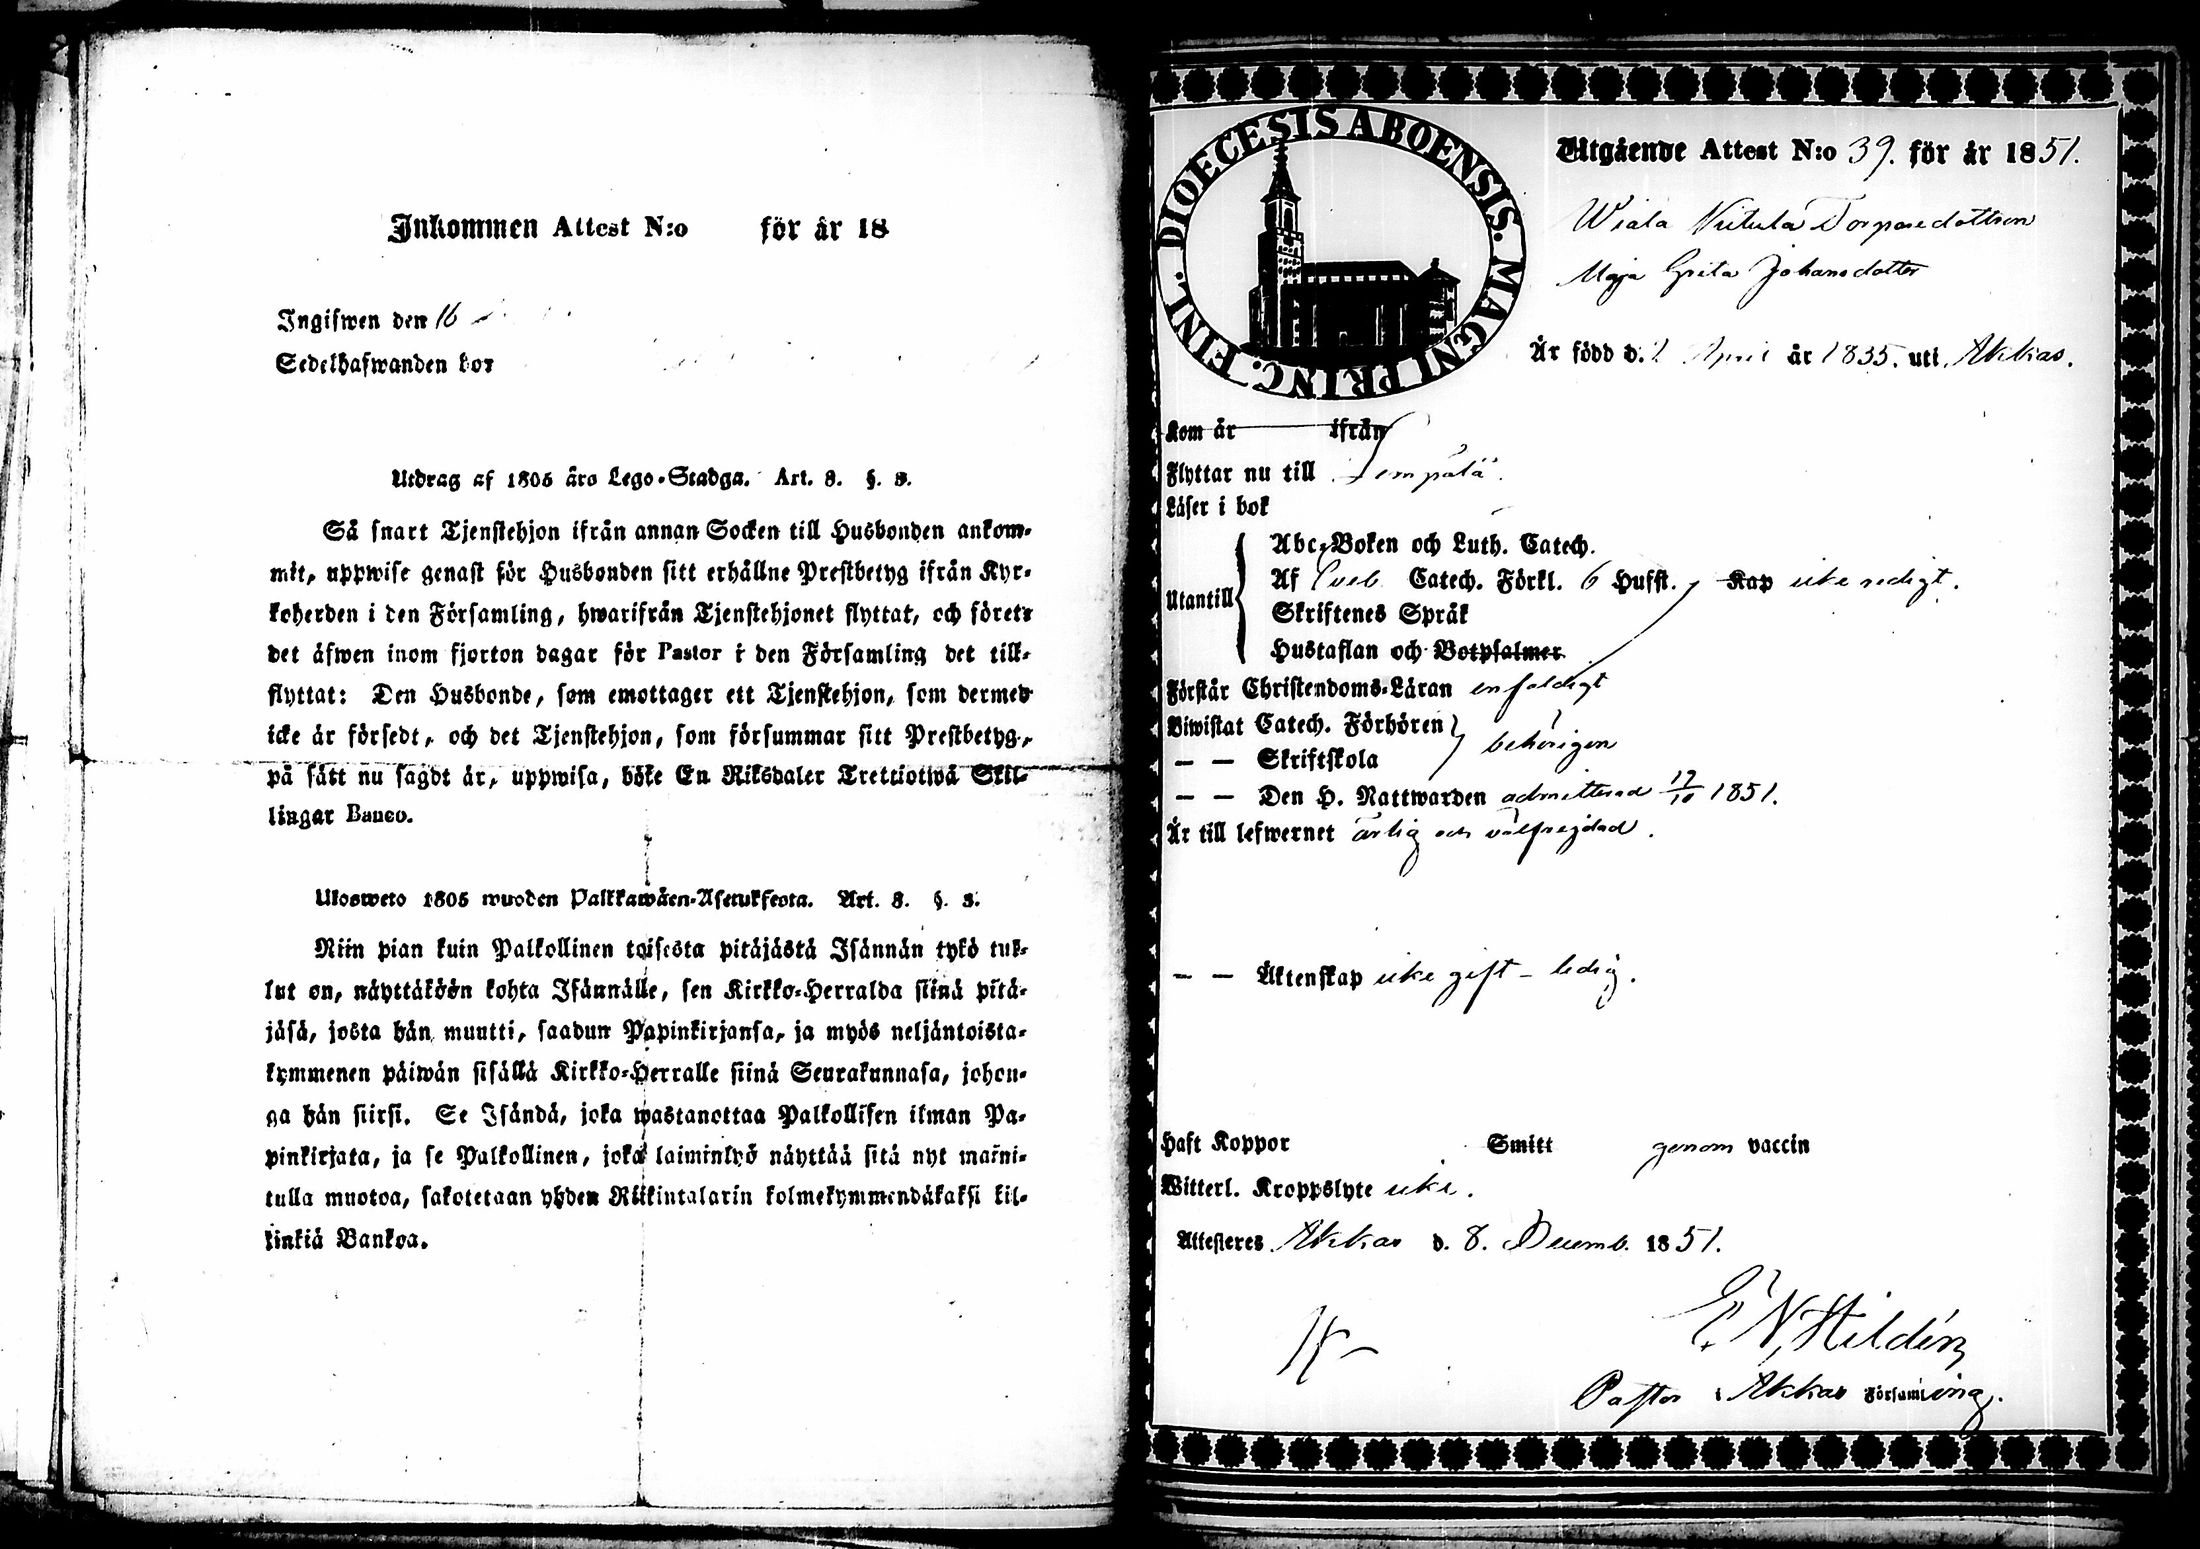 Inkommen Attest N:o för år 18
Ingifwen den 16
Sedelhafwanden bor
Utdrag af 1805 års Lego-Stadga. Art. 8. §. 3.
Så snart Tjenstehjon ifrån annan Socken till Husbonden ankom-
mit, uppwise genast för Husbonden sitt erhållne Prestbetyg ifrån Kyr-
koherden i den Församling, hwarifrån Tjenstehjonet flyttat, och förete
det äfwen inom fjorton dagar för Pastor i den Församling det till-
flyttat: Den Husbonde, som emottager ett Tjenstehjon, som dermed
icke är försedt, och det Tjenstehjon, som försummar sitt Prestbetyg,
på sätt nu sagdt är, uppwisa, böte En Riksdaler Trettiotwå Skil-
lingar Banco.
Ulosweto 1805 wuoden Palkkawäen-Asetuksesta. Art. 8. §. 3.
Niin pian kuin Palkollinen toisesta pitäjästä Isännän tykö tul-
lut on, näyttäköön kohta Isännälle, sen Kirkko-Herralda siinä pitä-
jäsä, josta hän muutti, saadun Papinkirjansa, ja myös neljäntoista-
kymmenen päiwän sisällä Kirkko-Herralle siinä Seurakunnasa, johon-
ga hän siirsi. Se Isändä, joka wastanottaa Palkollisen ilman Pa-
pinkirjata, ja se Palkollinen, joka laiminlyö näyttää sitä nyt maini-
tulla muotoa, sakotetaan yhden Riikintalarin kolmekymmendäkaksi kil-
linkiä Bankoa.
DIOECESIS ABOENSIS. MAGNI PRINC. FINL.
Utgående Attest N:o 39. för år 1851.
Wiala Torparedottren
Maja Greta Johansdotter
Är född d. 1 April år 1835. uti Akkas.
Kom år ifrån
Flyttar nu till Lempälä.
Läser i bok
Utantill
Abc-Boken och Luth. Catech.
Af Sveb. Catech. Förkl. 6 Hufst. Kap icke redigt.
Skriftenes Språk
Hustaflan och Botpsalmer
Förstår Christendoms-Läran enfaldigt
Biwistat Catech. Förhören
— — Skriftskola behörigen
— — Den H. Nattwarden admitterad 12/10 1851.
Är till lefwernet ärlig och välfrejdad.
— — Äktenskap icke gift - ledig.
Haft Koppor Smitt genom vaccin
Witterl. Kroppslyte icke.
Attesteres Akkas d. 8. Decemb. 1851.
E. N. Hildén
Pastor i Akkas Församling.